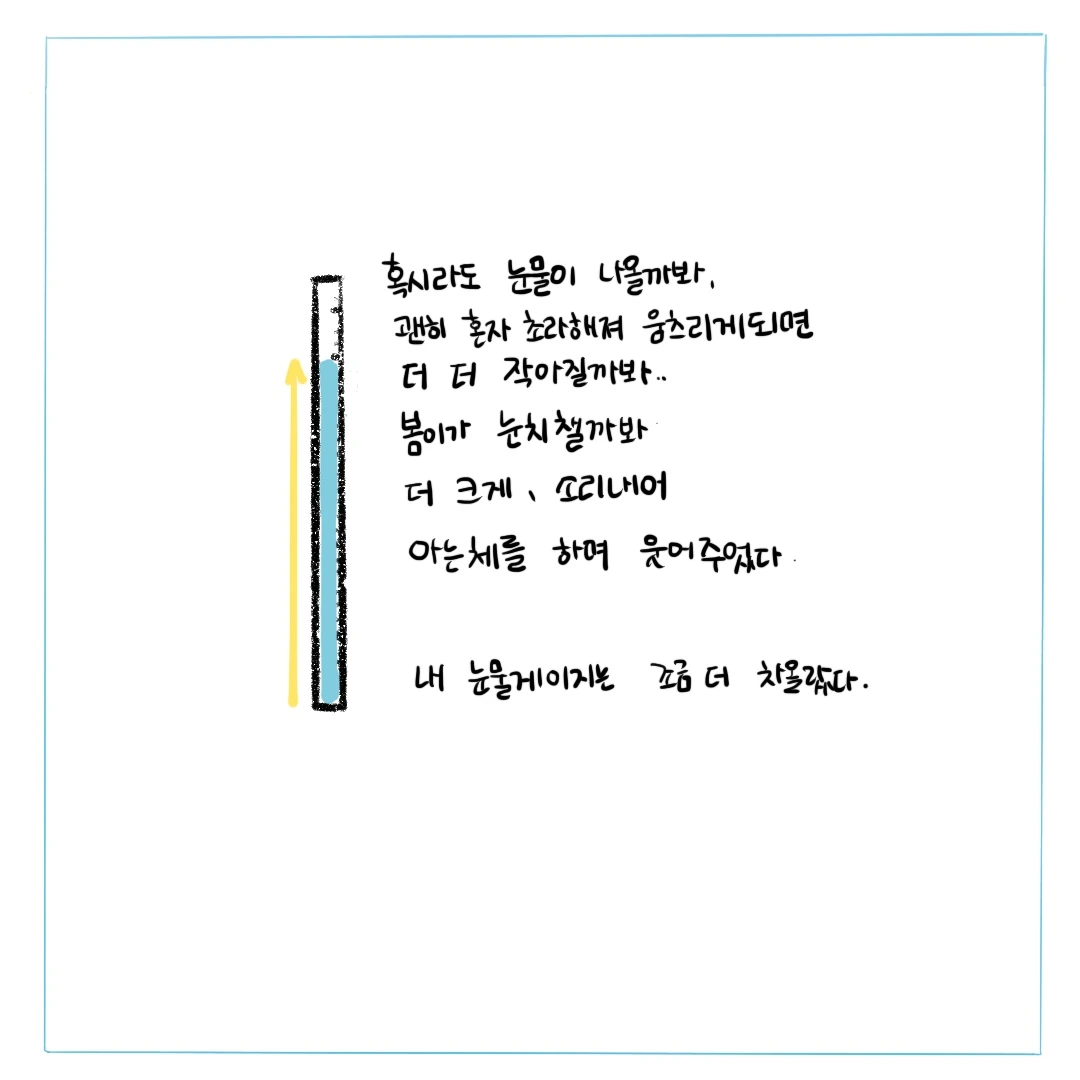 혹시라도 눈물이 나올까봐,
괜히 혼자 초라해져 움츠리게되면
더 더 작아질까봐..
봄이가 눈치챌까봐
더 크게, 소리내어
아는체를 하며 웃어주었다.
내 눈물게이지는 조금 더 차올랐다.